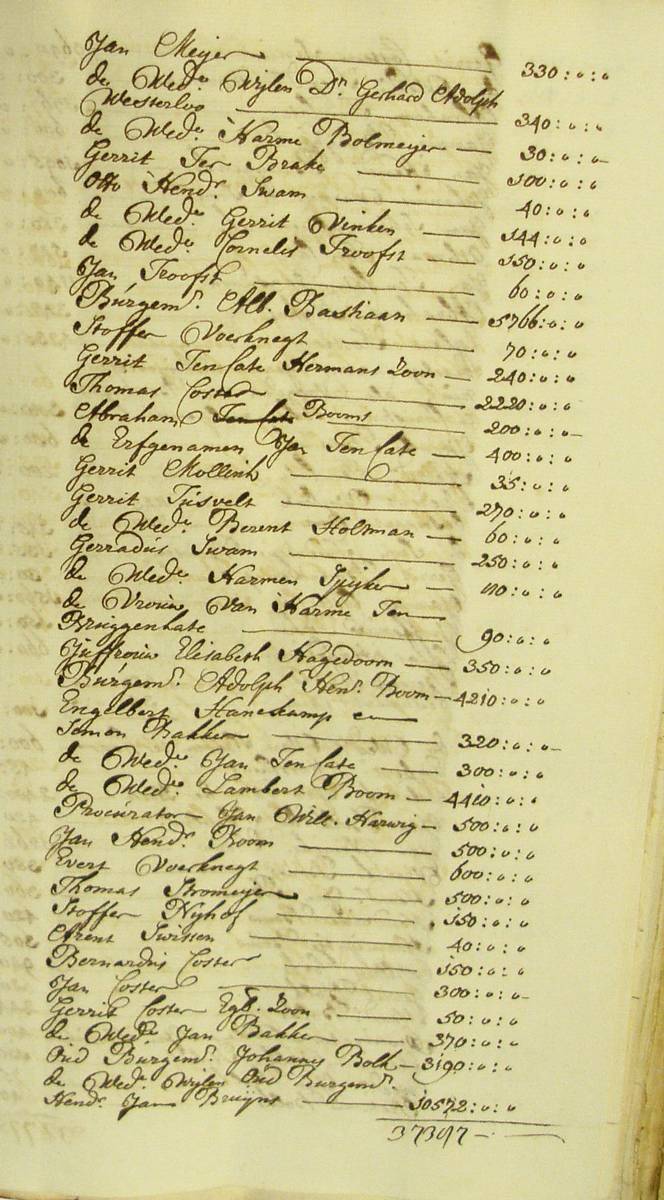 Jan Meijer — 330:0:0
de Wede. Wijlen Dr. Gerhard Adolph
Westerloo — 340:0:0
de Wede. Harme Bolmeijer — 30:0:0
Gerrit Ter Brake — 100:0:0
Otto Hendr. Swam — 40:0:0
de Wede. Gerrit Vinken — 144:0:0
de Wede. Cornelis Troofst — 150:0:0
Jan Troofst — 60:0:0
Burgemr. Alb. Bastiaan — 5766:0:0
Stoffer Voerknegt — 70:0:0
Gerrit Ten Cate Hermans Zoon — 240:0:0
Thomas Coster — 2220:0:0
Abraham Ten Cate Booms — 200:0:0
de Erfgenamen Jan Ten Cate — 400:0:0
Gerrit Mollink — 35:0:0
Gerrit Tijsvelt — 270:0:0
de Wede. Berent Holtman — 60:0:0
Gerradus Swam — 250:0:0
de Wede. Harmen Spijker — :0:0
de Vrouw Van Harme Ten
Bruggenhate — 90:0:0
Juffrouw Elisabeth Hagedoorn — 350:0:0
Burgemr. Adolph Henr. Boom — 4210:0:0
Engelbert Hanekamp en
Simon Bakker — 320:0:0
de Wede. Jan Ten Cate — 300:0:0
de Wede. Lambert Boom — 4410:0:0
Procurator Jan Will. Harwig — 500:0:0
Jan Hendr. Boom — 500:0:0
Evert Voerknegt — 600:0:0
Thomas Stromeijer — 500:0:0
Stoffer Nyhof — 150:0:0
Arent Swissen — 40:0:0
Bernardus Coster — 150:0:0
Jan Coster — 300:0:0
Gerrit Coster Egb. Zoon — 50:0:0
de Wede. Jan Bakker — 370:0:0
Oud Burgemr. Johannes Bolk — 3190:0:0
de Wede. Wijlen Oud Burgemr.
Hendr. Jan Bruijns — 10572:0:0
37397